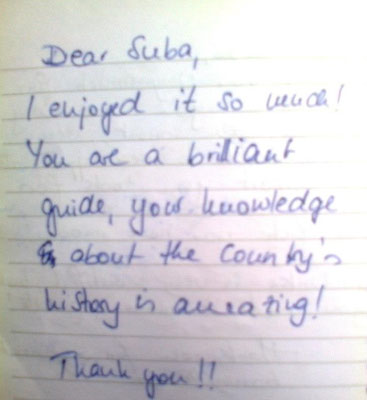 Dear Suba,
I enjoyed it so much!
You are a brilliant
guide, your knowledge
about the Country's
history is amazing!
Thank you!!